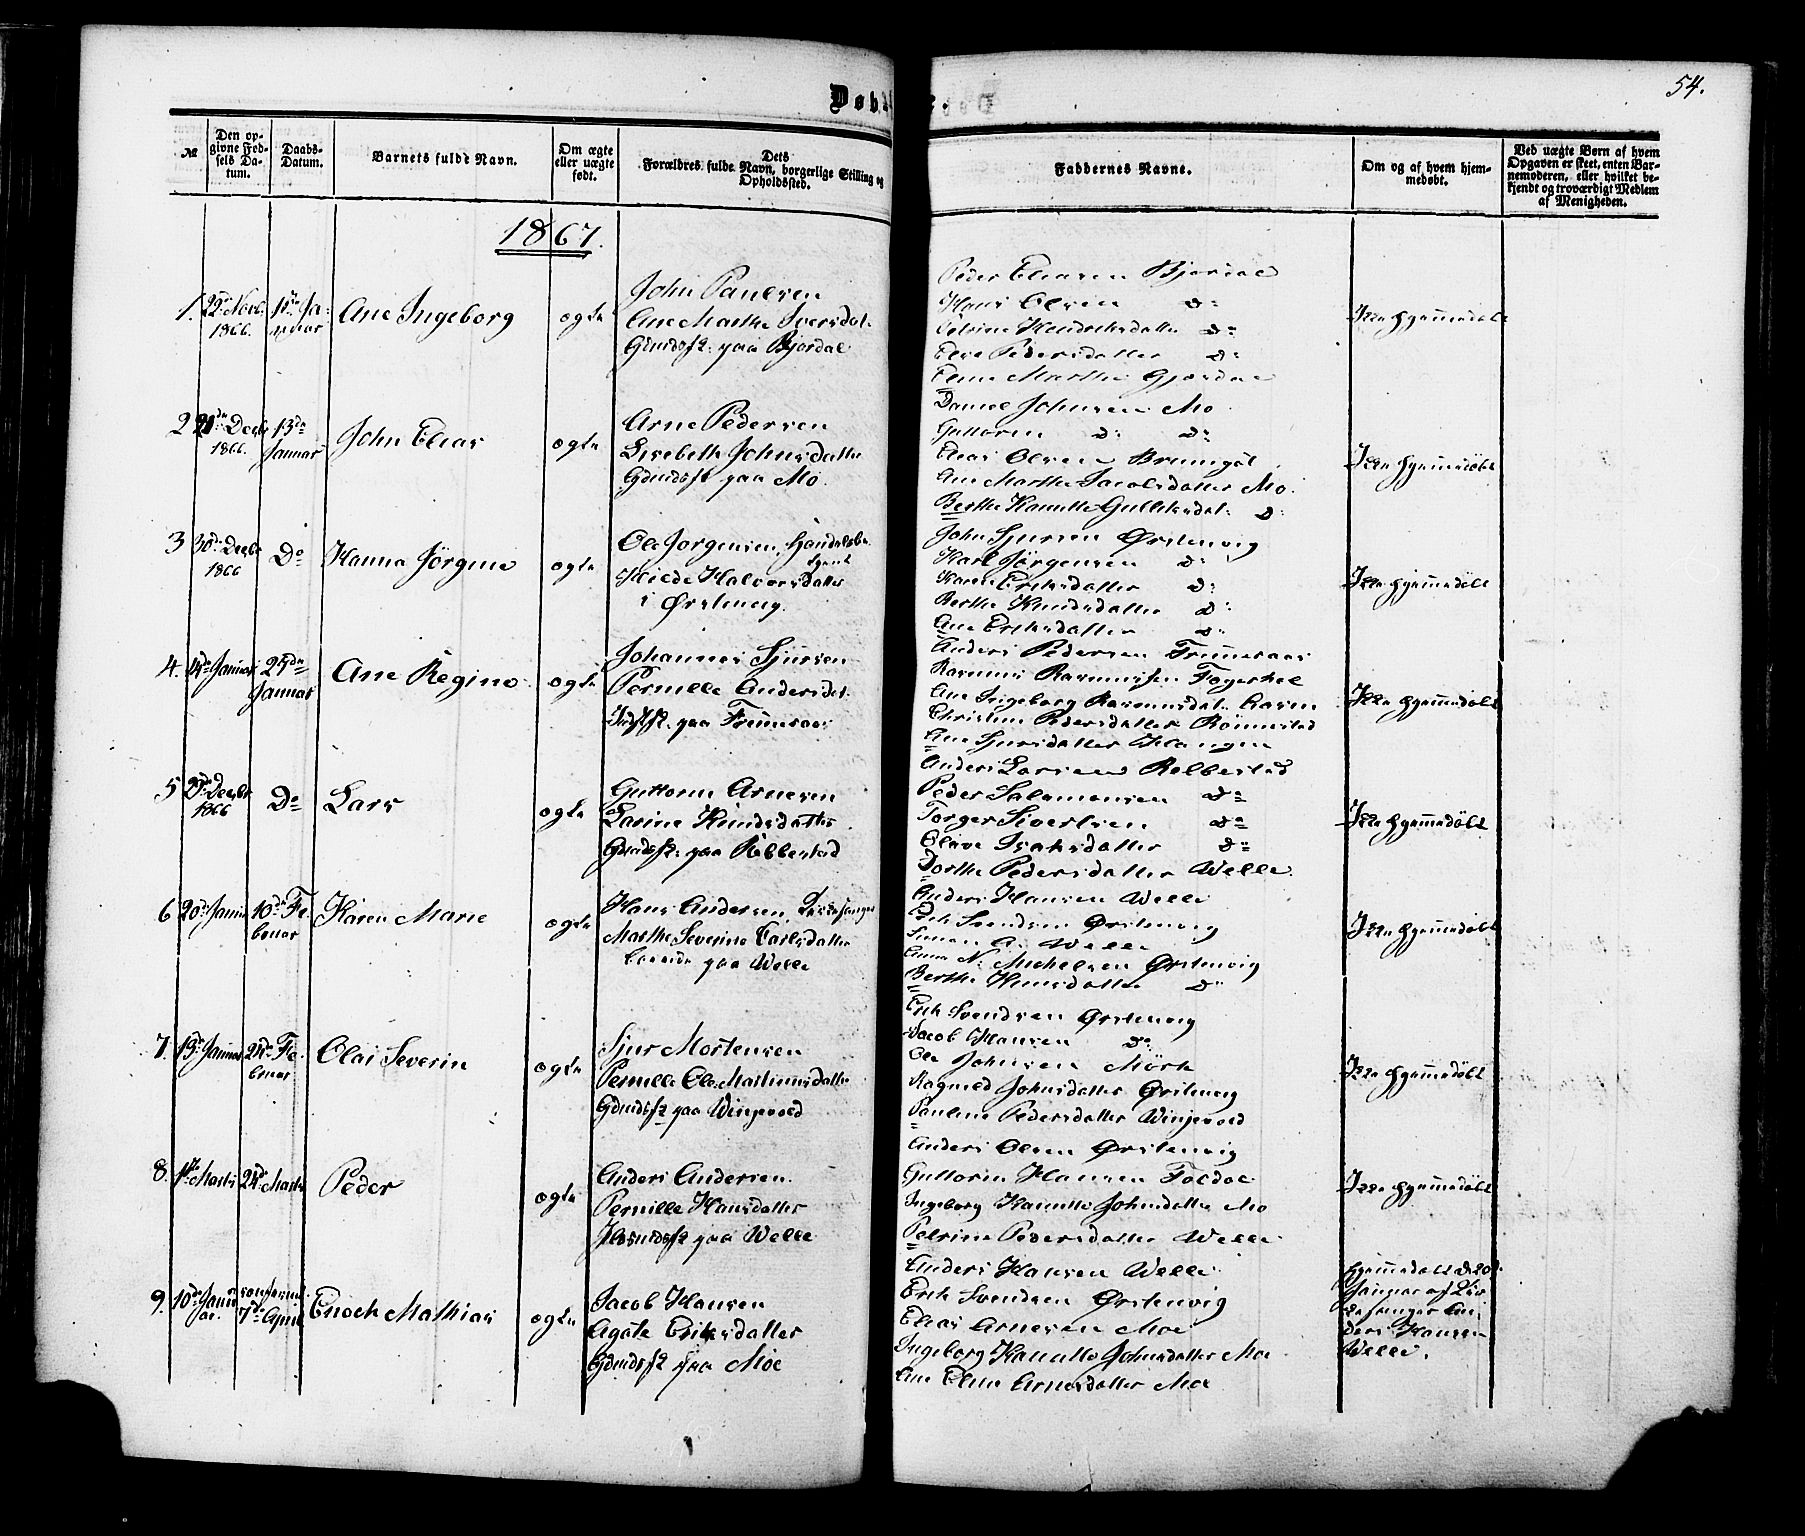 54.
Døb
№
Den opgivne Fødsels Datum.
Daabs-Datum.
Barnets fulde Navn.
Om ægte eller uægte født.
Dets Forældres fulde Navn, borgerlige Stilling og Opholdssted.
Faddernes Navne.
Om og af hvem hjemmedøbt.
Ved uægte Børn af hvem Opgaven er skeet, enten Barnemoderen, eller hvilket bekjendt og troværdigt Medlem af Menigheden.
1867.
1. 22de Novb. 1866.
1ste Januar
Ane Ingeborg
ogte
John Paulsen
Ane Marthe Iversdat.
Gmdsf. paa Bjørdal
Peder Eliasen Bjørdal
Hans Olsen do
Petrine Hendriksdatter do
Else Pedersdatter do
Eline Marthe Gjørdal
Ikke hjemmedøbt
2 21de Decbr 1866.
13de Januar
John Elias
ogte
Arne Pedersen
Lisebeth Johnsdatter
Gmdsf paa Mo.
Daniel Johnsen Mo
Guttorm do do
Elias Olsen
Ane Marthe Jacobsdatter Mo.
Berthe Hanette Gulliksdat. do
Ikke hjemmedøbt
3 30de Decbr 1866
Do
Hanna Jørgine
ogte
Ole Jørgensen,
Halvorsdatter
i Ørstenvig.
John Sjursen Ørstenvig
Karl Jørgensen do
Karen Eriksdatter do
Berthe Knudsdatter do
Ane Eriksdatter do
Ikke hjemmedøbt
4. Januar
25de Januar
Ane Regine
ogte
Johannes Sjursen
Pernille Andersdat.
paa
Anders Pedersen
Rasmus Rasmussen
Ane Ingeborg Rasmusdat. Aasen
Christine Pedersdatter Rønnestad
Ane Sjursdatter
Ikke hjemmedøbt
5 Decbr 1866
Do
Lars
ogte
Guttorm Arnesen
Larine Knudsdatter
Gmdsf. paa Ribbestad
Anders Larsen Rebbestad
Peder Salamonsen do
Torger Sivertsen do
Olave Isaksdatter do
Dorthe Pedersdatter Welle
Ikke hjemmedøbt
6 20de Januar
10de Februar
Karen Marie
ogte
Hans Andersen,
Marthe Severine Carlsdatter
paa Welle
Anders Hansen Welle
Erik Svendsen Ørstenvig
Simon A. Welle
Anna N. Michelsen Ørstenvig
Berthe Knudsdatter do
Ikke hjemmedøbt
7. 13de Januar
24de Februar
Olai Severin
ogte
Sjur Mortensen
Pernille Ole Martinusdatter
Gmdsf paa Winjevold
Erik Svendsen Ørstenvig
Jacob Hansen do
Ole Johnsen Mørk
Ragnild Johnsdatter Ørstenvig
Pauline Pedersdatter Winjevold
Ikke hjemmedøbt
8. Marts
24de Marts
Peder
ogte
Anders Andersen
Pernille Hansdatter
paa Welle
Anders Olsen Ørstenvig
Guttorm Hansen
Ingeborg Hanette Johnsdatter Mo
Petrine Pedersdatter Welle
Ikke hjemmedøbt
9. 10de Januar
7de April
Enoch Mathias
ogte
Jacob Hansen
Agate Eriksdatter
Gmdsf paa Moe
Anders Hansen Welle
Erik Svendsen Ørstenvig
Elias Arnesen Moe
Ingeborg Hanette Johnsdatter Moe
Ane Eline Arnesdatter Moe
Hjemmedøbt d. 20de
Januar af
Anders Hansen
Welle.